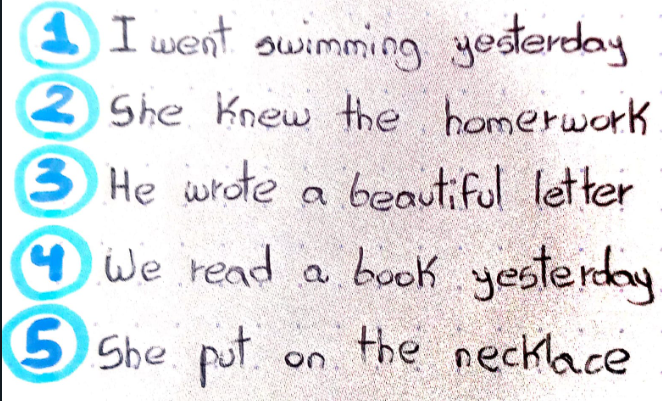 1 I went swimming yesterday
2 She knew the homerwork
3 He wrote a beautiful letter
4 We read a book yesterday
5 She put on the necklace